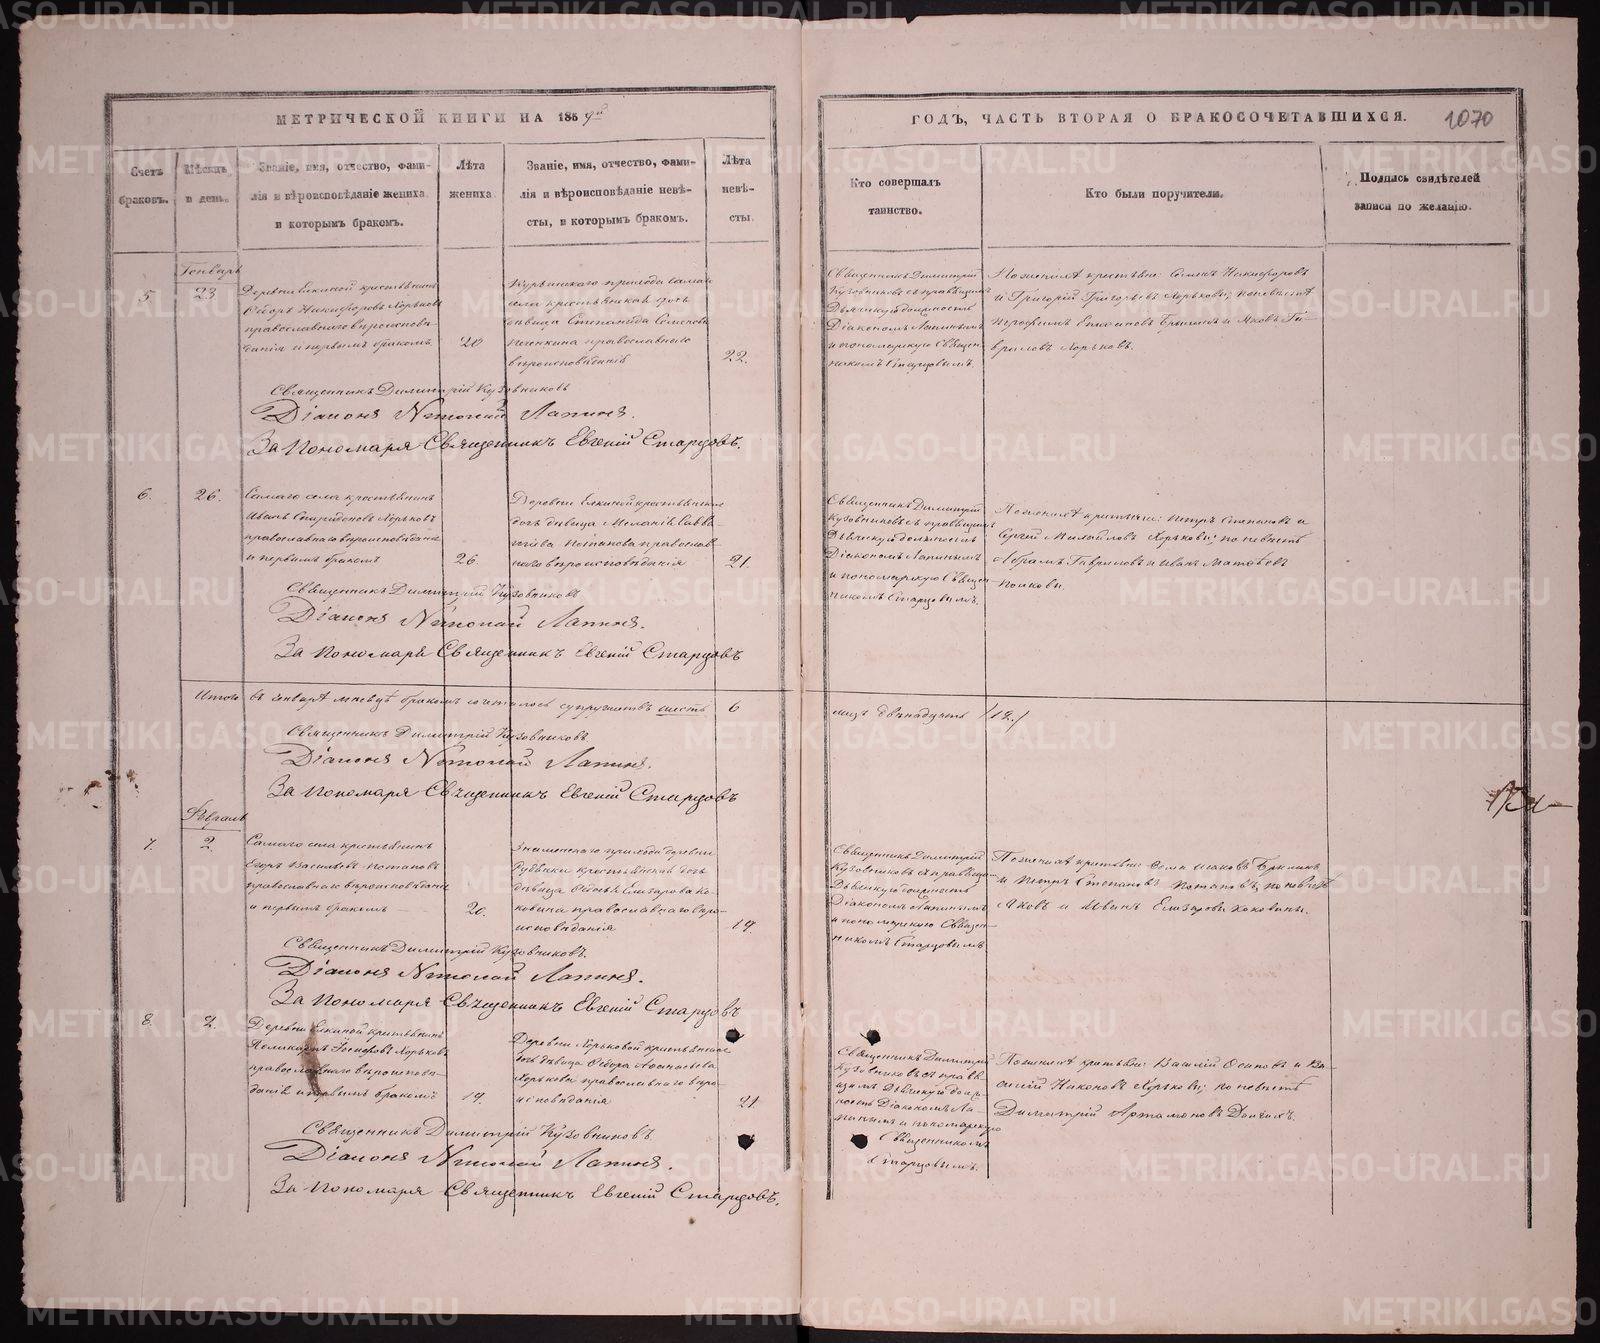 МЕТРИЧЕСКОЙ КНИГИ НА 186
ГОДЪ, ЧАСТЬ ВТОРАЯ О БРАКОСОЧЕТАВШИХСЯ.
1070
Счетъ
браковъ.
Мѣсяцъ
и день.
Званіе, имя, отчество, фами-
лія и вѣроисповѣданіе жениха
и которымъ бракомъ.
Лѣта
жениха.
Званіе, имя, отчество, фами-
лія и вѣроисповѣданіе невѣ-
сты, и которымъ бракомъ.
Лѣта
невѣ-
сты.
Кто совершалъ
таинство.
Кто были поручители.
Подпись свидѣтелей
записи по желанію.
Генварь
5.
23.
Деревни Елкиной крестьянинъ
Ѳедоръ Никифоровъ Хорьковъ
православнаго вѣроисповѣ-
данія и первымъ бракомъ
20
прихода самаго
села крестьянская дочь
дѣвица Степанида Семенова
православнаго
вѣроисповѣданія
22.
Священникъ Димитрій
Кузовниковъ съ правящимъ
Дьяческую должность
Діакономъ Лапинымъ
и пономарскую Священ-
никомъ Старцовымъ.
По женихѣ крестьяне: Семенъ Никифоровъ
и Григорій Григорьевъ Хорьковы; по невѣстѣ
и Яковъ Га-
вриловъ Хорьковъ.
Священникъ Димитрій Кузовниковъ
Діаконъ Николай Лапинъ.
За Пономаря Священникъ Евгеній Старцовъ.
6.
26.
Самаго села крестьянинъ
Иванъ Спиридоновъ Хорьковъ
православнаго вѣроисповѣданія
и первымъ бракомъ
26.
Деревни Елкиной крестьянская
дочь дѣвица Меланія Савва-
тіева Потапова православ-
наго вѣроисповѣданія
21.
Священникъ Димитрій
Кузовниковъ съ правящимъ
Дьяческую должность
Діакономъ Лапинымъ
и пономарскую Священ-
никомъ Старцовымъ.
По женихѣ крестьяне: Петръ Степановъ и
Сергій Михайловъ Хорьковы; по невѣстѣ
Абрамъ Гавриловъ и Иванъ Матвѣевъ
Священникъ Димитрій Кузовниковъ
Діаконъ Николай Лапинъ.
За Пономаря Священникъ Евгеній Старцовъ
Итого въ Генварѣ мѣсяцѣ бракомъ сочеталось супружествъ шесть 6
лицъ двѣнадцать /12./
Священникъ Димитрій Кузовниковъ
Діаконъ Николай Лапинъ.
За Пономаря Священникъ Евгеній Старцовъ
Февраль
7.
2.
Самаго села крестьянинъ
Егоръ Васильевъ Потаповъ
православнаго вѣроисповѣданія
и первымъ бракомъ
20.
Знаменскаго прихода деревни
крестьянская дочь
дѣвица Елеазарова Ко-
ковина православнаго вѣро-
исповѣданія
19.
Священникъ Димитрій
Кузовниковъ съ правящимъ
Дьяческую должность
Діакономъ Лапинымъ
и пономарскую Священ-
никомъ Старцовымъ
По женихѣ крестьяне:
и Петръ Степановъ Потаповъ; по невѣстѣ
Яковъ и Иванъ Елеазаровы Коковины.
Священникъ Димитрій Кузовниковъ.
Діаконъ Николай Лапинъ.
За Пономаря Священникъ Евгеній Старцовъ
8.
2.
Деревни Елкиной крестьянинъ
Поликарпъ Іосифовъ Хорьковъ
православнаго вѣроисповѣ-
данія и первымъ бракомъ
19.
Деревни Хорьковой крестьянская
дочь дѣвица Ѳедора Афонасьева
Хорькова православнаго вѣро-
исповѣданія
21.
Священникъ Димитрій
Кузовниковъ съ правя-
щимъ Дьяческую долж-
ность Діакономъ Ла-
пинымъ и пономарскую
Священникомъ
Старцовымъ.
По женихѣ крестьяне: Василій Осиповъ и Ва-
силій Никоновъ Хорьковы; по невѣстѣ
Димитрій Артамоновъ
Священникъ Димитрій Кузовниковъ.
Діаконъ Николай Лапинъ.
За Пономаря Священникъ Евгеній Старцовъ.
METRIKI.GASO-URAL.RU